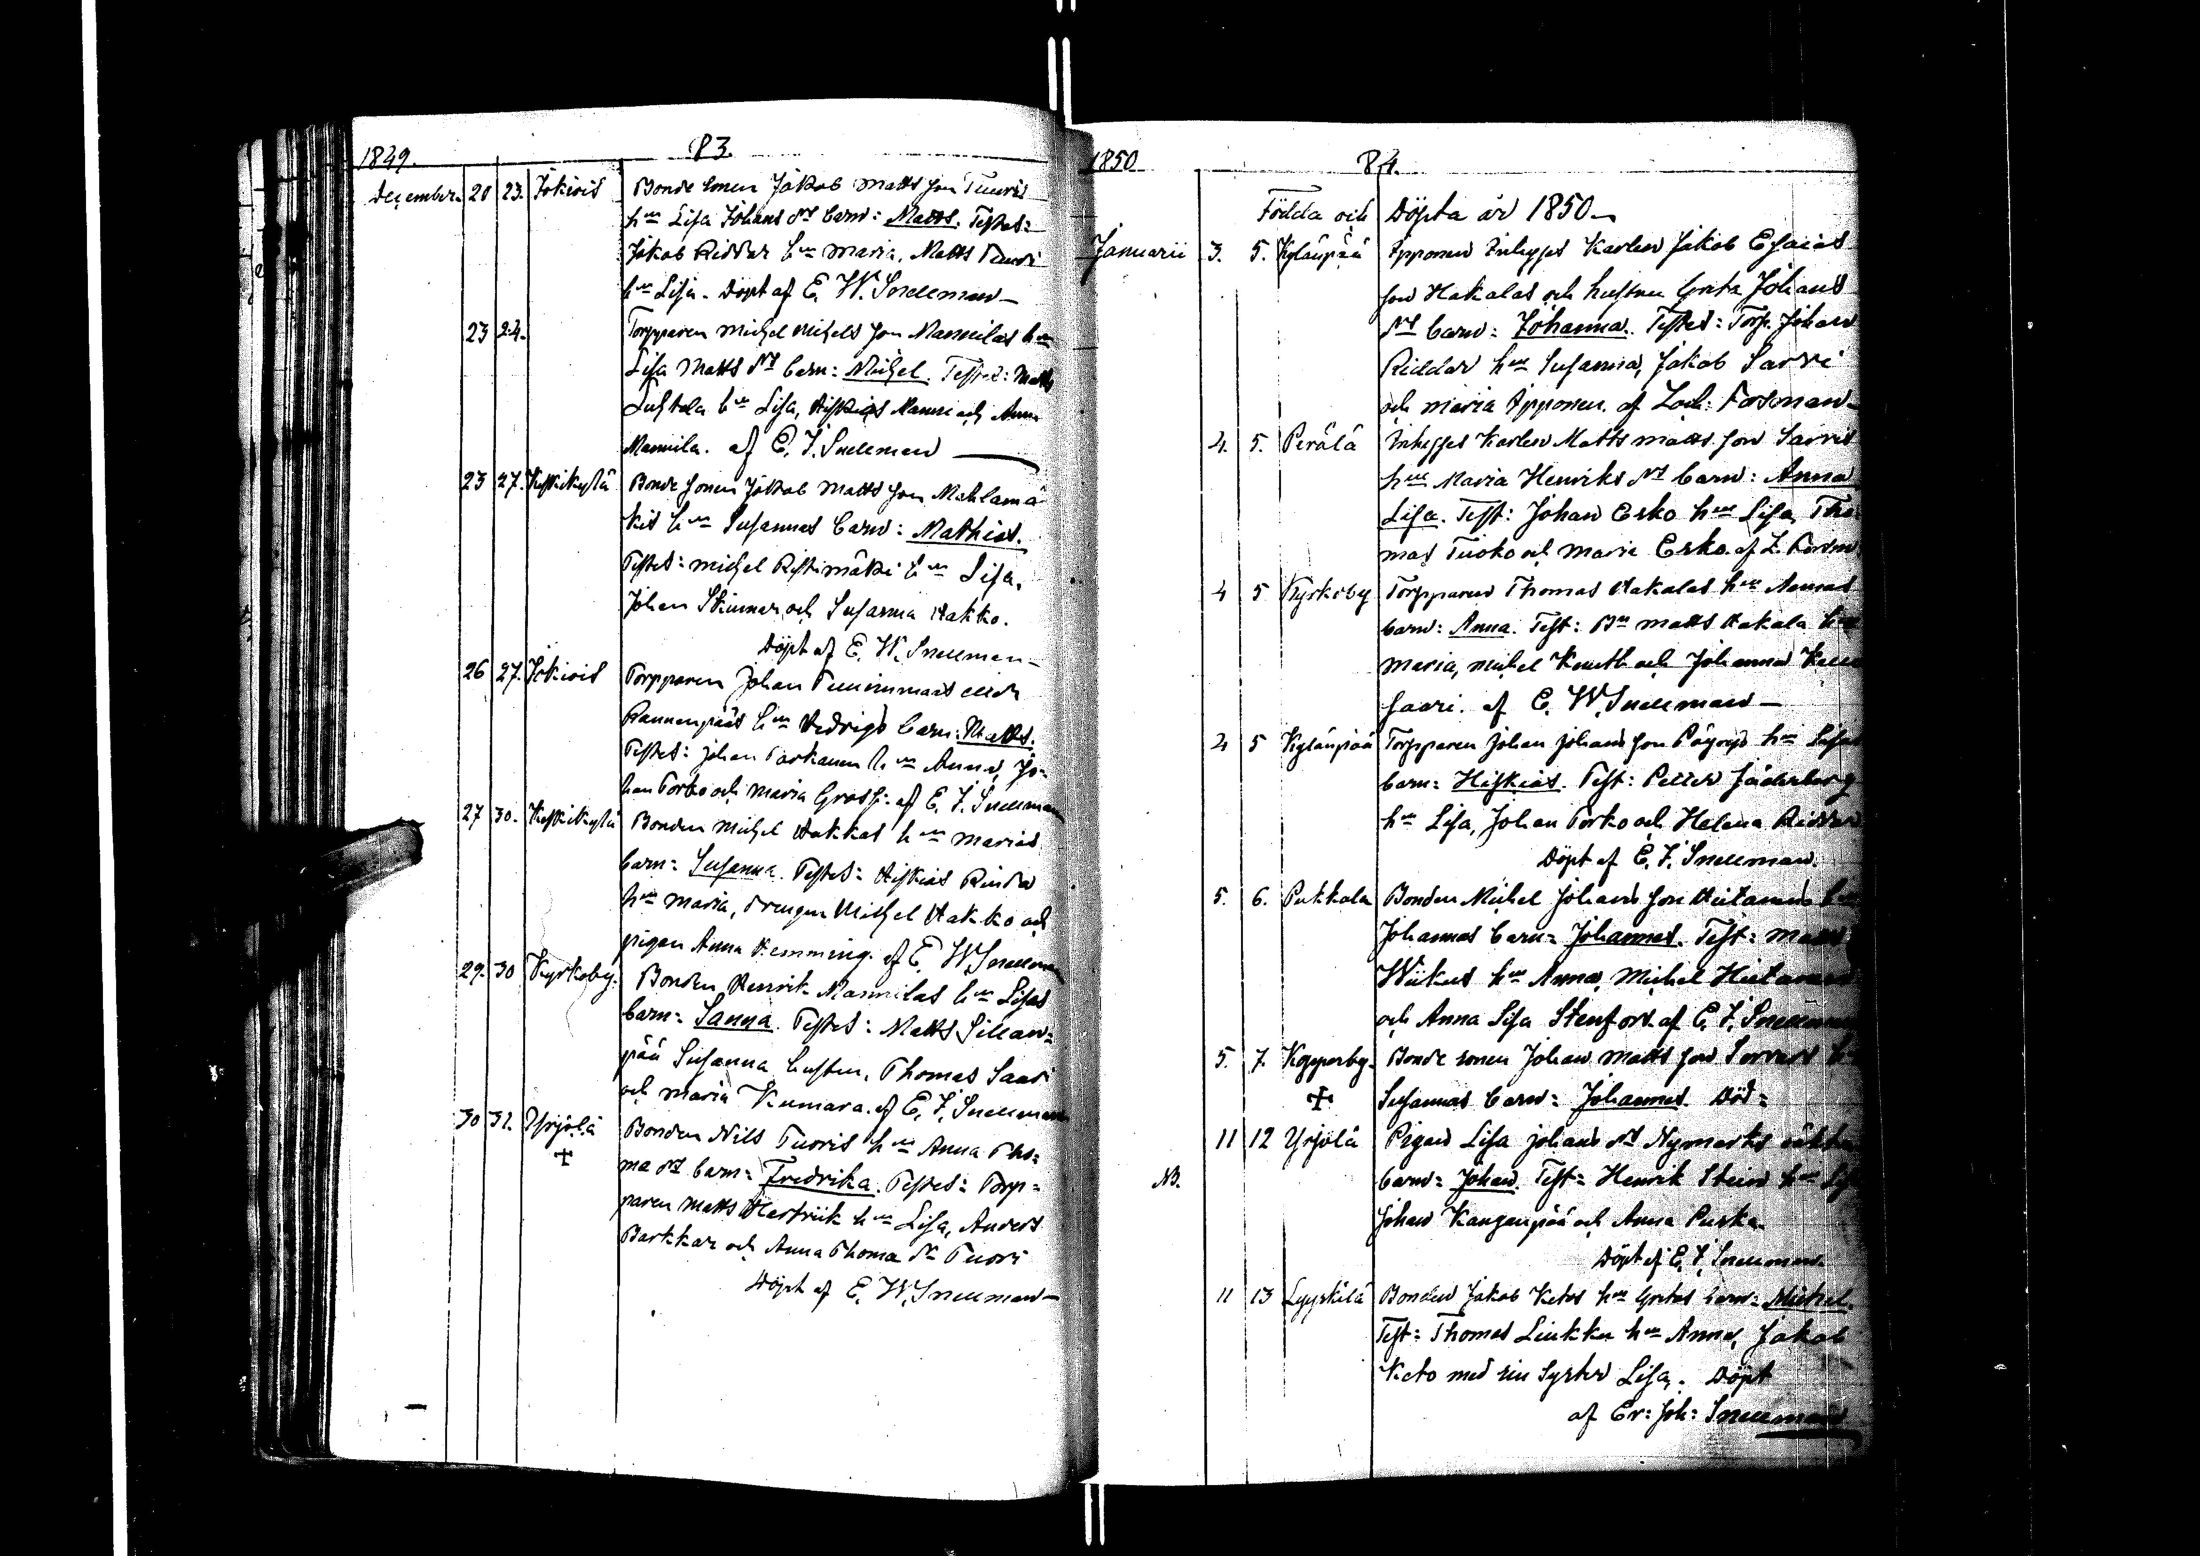 1849. 83.
December. 20 23. Jokiois Bonde sonen Jakob Matts son Tuuris
hun Lisa Johans dr barn: Matts. Testes:
Jakob Riddar hun Maria, Matts Tuuri
hun Lisa. Döpt af E. W. Snellman
23 24. Torpparen Michel Michels son Mannilas hun
Lisa Matts dr barn: Michel. Testes: Matts
Luhtala hun Lisa, Hiskias Manni och Anna
Mannila. af E. J. Snellman
23 27. Keskikylä Bonde sonen Jakob Matts son Mahlamä
kis hun Susannas barn: Mathias.
Testes: Michel Ristimäki hun Lisa,
Johan Skinnar och Susanna Hakko.
Döpt af E. W. Snellman
26 27. Jokiois Torpparen Johan Tuurinmaas
Rannanpääs hun Hedvigs barn: Matts.
Testes: Johan Parkanen hun Anna, Jo=
han Torko och Maria Grossi. af E. J. Snellman
27 30. Keskikylä Bonden Michel Hakkas hun Marias
barn: Susanna. Testes: Hiskias Rinda
hun Maria, drengen Michel Hakko och
pigan Anna Hemming. af E. W Snellman
29. 30 Kyrkoby. Bonden Henrik Mannilas hun Lisas
barn: Sanna. Testes: Matts Sillan=
pää Susanna hustru, Thomas Saari
och Maria Kumara. af E. J. Snellman
30 31. Yrjölä Bonden Nils Tuoris hun Anna Tho=
ma dr barn: Fredrika. Testes: Torp=
paren Matts hun Lisa, Anders
Barkkar och Anna Thoma dr Tuori
Döpt af E. W. Snellman
1850 84.
Födda och Döpta år 1850
Januarii 3. 5. Kylänpää Ipponen Inhyses Karlen Jakob Esaias
son Hakalas och hustru Greta Johans
dr barn: Johanna. Testes: Torp. Johan
Riddar hun Susanna, Jakob Sarvi
och Maria Ipponen. af Zach: Forsman
4. 5. Perälä Inhyses Karlen Matts Matts son Sarvis
hun Maria Henriks dr barn: Anna
Lisa. Test: Johan Esko hun Lisa, Tho
mas Tuoko och Maria Esko. af Z. Forsm
4 5 Kyrkoby Torpparen Thomas Hakalas hun Annas
barn: Anna. Test: Bn Matts Hakala hun
Maria, Michel Knuth och Johanna
saari. af E. W. Snellman
4 5 Kylänpää Torpparen Johan Johans son hun Lisas
barn: Hiskias. Test: Petter Säderberg
hun Lisa, Johan Torko och Helena Riddar
Döpt af E. J. Snellman.
5. 6. Pukkala Bonden Michel Johans son Hietanens hun
Johannas barn: Johannes. Test: Matts
Wiikus hun Anna, Michel Hietanen
och Anna Lisa Stenfors. af E. J. Snellman
5. 7. Kopparby. Bonde sonen Johan Matts son Sorvars hun
Susannas barn: Johannes. Död=
11 12 Yrjölä Pigan Lisa Johans dr Nymarks oäkta
NB. barn: Johan. Test: Henrik Stein hun Lisa
Johan Kangaspää och Anna Puska.
Döpt af E. J. Snellman.
11 13 Lyyskilä Bonden Jakob Ketos hun Gretas barn: Michel.
Test: Thomas Liukku hun Anna, Jakob
Keto med sin Syster Lisa. Döpt
af Er: Joh: Snellman